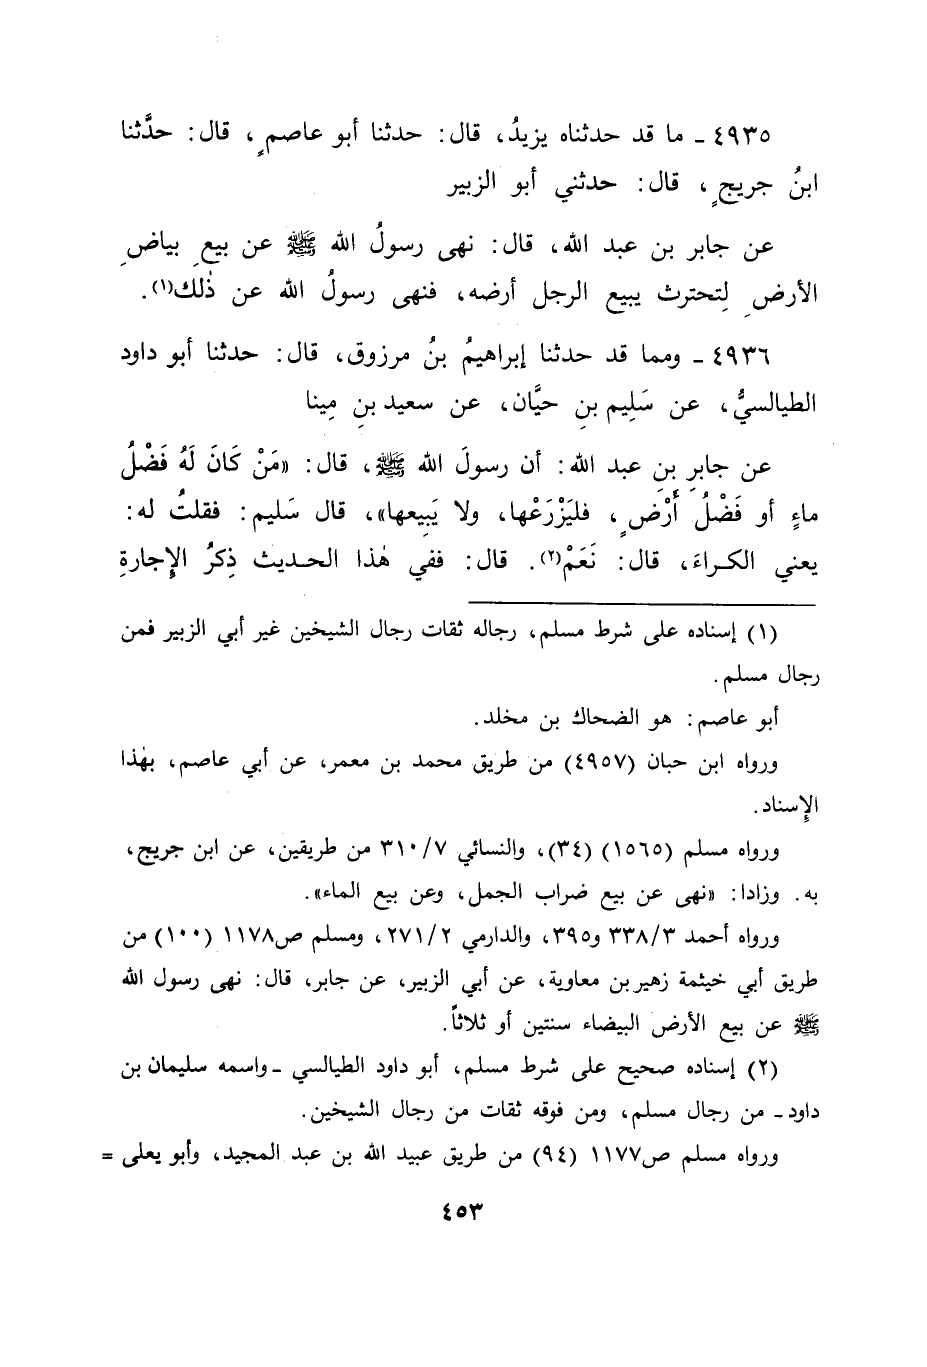 ٤٩٣٥ ـ ما قد حدثناه يزيدُ، قال: حدثنا أبو عاصمٍ، قال: حدَّثنا
ابنُ جريجٍ، قال: حدثني أبو الزبير
عن جابر بن عبد الله، قال: نهى رسولُ الله ﷺ عن بيعِ بياضِ
الأرضِ لِتحترث يبيع الرجل أرضه، فنهى رسولُ الله عن ذٰلك(١).
٤٩٣٦ ـ ومما قد حدثنا إبراهيمُ بنُ مرزوق، قال: حدثنا أبو داود
الطيالسيُّ، عن سَلِيم بنِ حيَّان، عن سعيد بنِ مِينا
عن جابرِ بنِ عبد الله: أن رسولَ الله ﷺ، قال: «مَنْ كَانَ لَهُ فَضْلُ
ماءٍ أو فَضْلُ أَرْضٍ، فليَزْرَعْها، ولا يَبِيعها»، قال سَليم: فقلتُ له:
يعني الكراءَ، قال: نَعَمْ(٢). قال: ففي هٰذا الحديث ذِكرُ الإِجارةِ
(١) إسناده على شرط مسلم، رجاله ثقات رجال الشيخين غير أبي الزبير فمن
رجال مسلم.
أبو عاصم: هو الضحاك بن مخلد.
ورواه ابن حبان (٤٩٥٧) من طريق محمد بن معمر، عن أبي عاصم، بهٰذا
الإِسناد.
ورواه مسلم (١٥٦٥) (٣٤)، والنسائي ٣١٠/٧ من طريقين، عن ابن جريج،
به. وزادا: «نهى عن بيع ضراب الجمل، وعن بيع الماء».
ورواه أحمد ٣٣٨/٣ و٣٩٥، والدارمي ٢٧١/٢، ومسلم ص١١٧٨ (١٠٠) من
طريق أبي خيثمة زهير بن معاوية، عن أبي الزبير، عن جابر، قال: نهى رسول الله
ﷺ عن بيع الأرض البيضاء سنتين أو ثلاثاً.
(٢) إسناده صحيح على شرط مسلم، أبو داود الطيالسي ـ واسمه سليمان بن
داود ـ من رجال مسلم، ومن فوقه ثقات من رجال الشيخين.
ورواه مسلم ص١١٧٧ (٩٤) من طريق عبيد الله بن عبد المجيد، وأبو يعلى =
٤٥٣